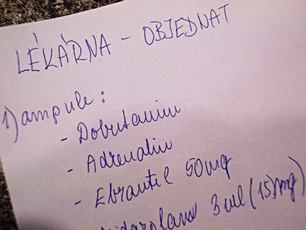 LÉKÁRNA - OBJEDNAT
1) ampule:
- Dobutamin
- Adrenalin
- Ebrantil 50mg
3ml (15mg)